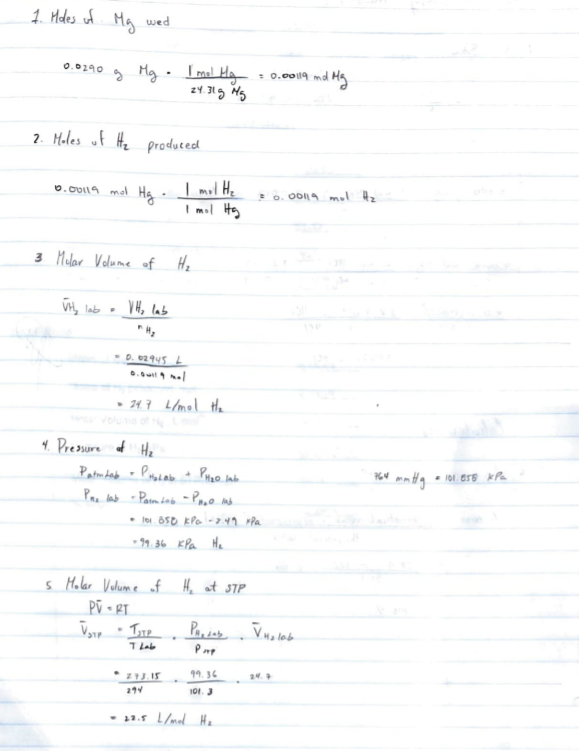 1. Moles of Mg used
0.0290 g Mg · 1 mol Mg / 24.31g Mg = 0.00119 mol Mg
2. Moles of H₂ produced
0.00119 mol Mg · 1 mol H₂ / 1 mol Mg = 0.00119 mol H₂
3 Molar Volume of H₂
V̄H₂ lab = VH₂ lab / nH₂
= 0.02945 L / 0.00119 mol
= 24.7 L/mol H₂
4. Pressure of H₂
Patm Lab = PH₂ Lab + PH₂O lab
764 mmHg = 101.858 kPa
PH₂ lab = Patm Lab - PH₂O lab
= 101.858 kPa - 2.49 kPa
= 99.36 kPa H₂
5 Molar Volume of H₂ at STP
PV̄ = RT
V̄STP = TSTP / T Lab · PH₂ Lab / P STP · V̄H₂ lab
= 273.15 / 294 · 99.36 / 101.3 · 24.7
= 22.5 L/mol H₂